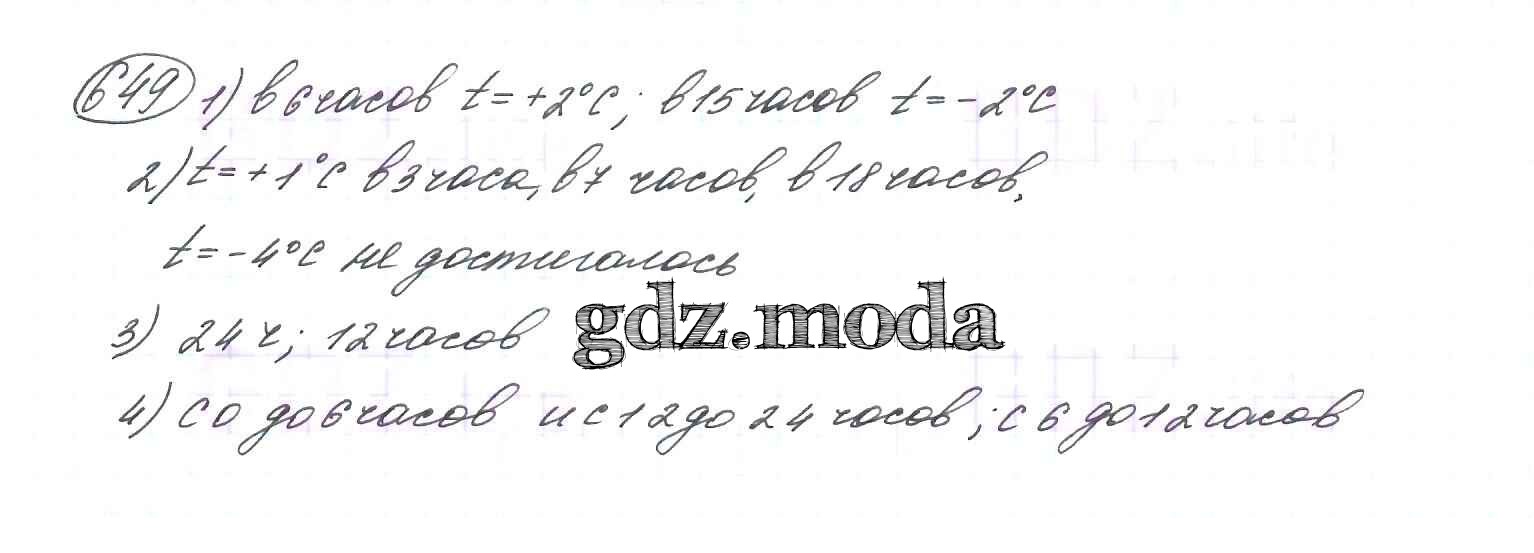 649 1) в 6 часов t = +2°C; в 15 часов t = -2°C
2) t = +1°C в 3 часа, в 7 часов, в 18 часов,
t = -4°C не достигалось
3) 24 ч; 12 часов
gdz.moda
4) с 0 до 6 часов и с 12 до 24 часов; с 6 до 12 часов